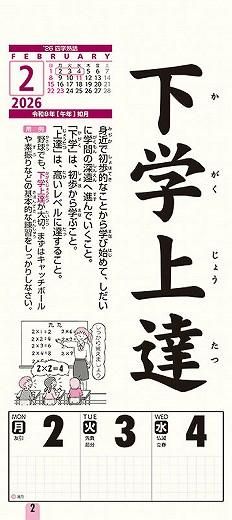 '26 四字熟語
FEBRUARY
2
2026
日 月 火 水 木 金 土
1 2 3 4 5 6 7
8 9 10 11 12 13 14
15 16 17 18 19 20 21
22 23 24 25 26 27 28
令和8年 [午年] 如月
下学上達
か がく じょう たつ
身近で初歩的なことから学び始めて、しだい
に学問の深遠へ進んでいくこと。
「下学」は、初歩から学ぶこと。
「上達」は、高いレベルに達すること。
用例
野球でも、下学上達が大切。まずはキャッチボール
や素振りなどの基本的な練習をしっかりしなさい。
九九
2×1=2
2×2=4
2×3=6
2×2=4
MON
月
友引
2
TUE
火
先負
節分
3
WED
水
仏滅
立春
4
満月
2